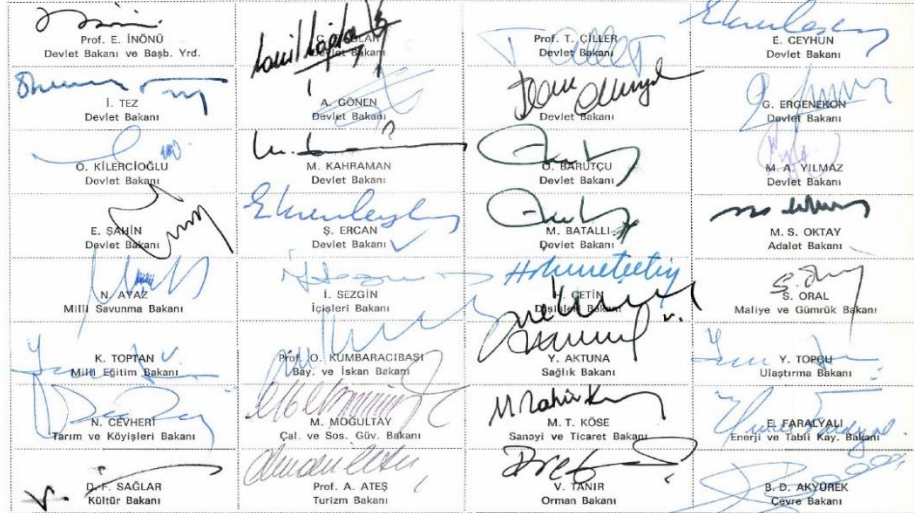 Prof. E. İNÖNÜ
Devlet Bakanı ve Başb. Yrd.
Devlet Bakanı
Prof. T. ÇİLLER
Devlet Bakanı
E. CEYHUN
Devlet Bakanı
İ. TEZ
Devlet Bakanı
A. GÖNEN
Devlet Bakanı
Devlet Bakanı
G. ERGENEKON
Devlet Bakanı
O. KİLERCİOĞLU
Devlet Bakanı
M. KAHRAMAN
Devlet Bakanı
Ö. BARUTÇU
Devlet Bakanı
M. A. YILMAZ
Devlet Bakanı
E. ŞAHİN
Devlet Bakanı
Ş. ERCAN
Devlet Bakanı
M. BATALLI
Devlet Bakanı
M. S. OKTAY
Adalet Bakanı
N. AYAZ
Milli Savunma Bakanı
İ. SEZGİN
İçişleri Bakanı
H. ÇETİN
Dışişleri Bakanı
S. ORAL
Maliye ve Gümrük Bakanı
K. TOPTAN
Milli Eğitim Bakanı
Prof. O. KUMBARACIBAŞI
Bay. ve İskan Bakanı
Y. AKTUNA
Sağlık Bakanı
Y. TOPÇU
Ulaştırma Bakanı
N. CEVHERİ
Tarım ve Köyişleri Bakanı
M. MOĞULTAY
Çal. ve Sos. Güv. Bakanı
M. T. KÖSE
Sanayi ve Ticaret Bakanı
E. FARALYALI
Enerji ve Tabii Kay. Bakanı
D. F. SAĞLAR
Kültür Bakanı
Prof. A. ATEŞ
Turizm Bakanı
V. TANIR
Orman Bakanı
B. D. AKYÜREK
Çevre Bakanı